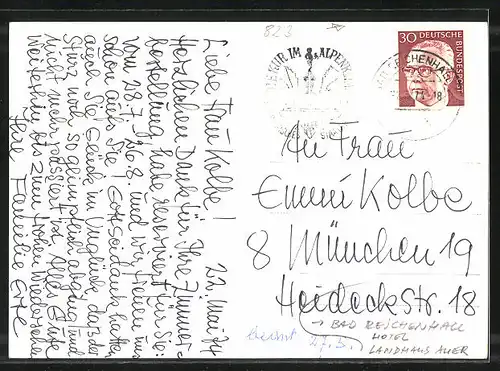 823
KUR IM ALPEN
REICHENHALL
71-18
30 DEUTSCHE BUNDESPOST
21. Mai 74
Liebe Frau Kolbe!
Herzlichen Dank für Ihre Zimmer-
bestellung habe reserviert für Sie:
vom 28.7. - 8. und wir freuen uns
schon aufs Sie! Gottseidank hatten
auch Sie Glück im Unglück, das der
Sturz noch so glimpflich abging und
nicht mehr passiert ist. Alles Gute
weiterhin bis zum frohen Wiedersehen
Ihre Familie
An Frau
Emmi Kolbe
8 München 19
Heideckstr. 18
BAD REICHENHALL
HOTEL
LANDHAUS AUER
27.5.